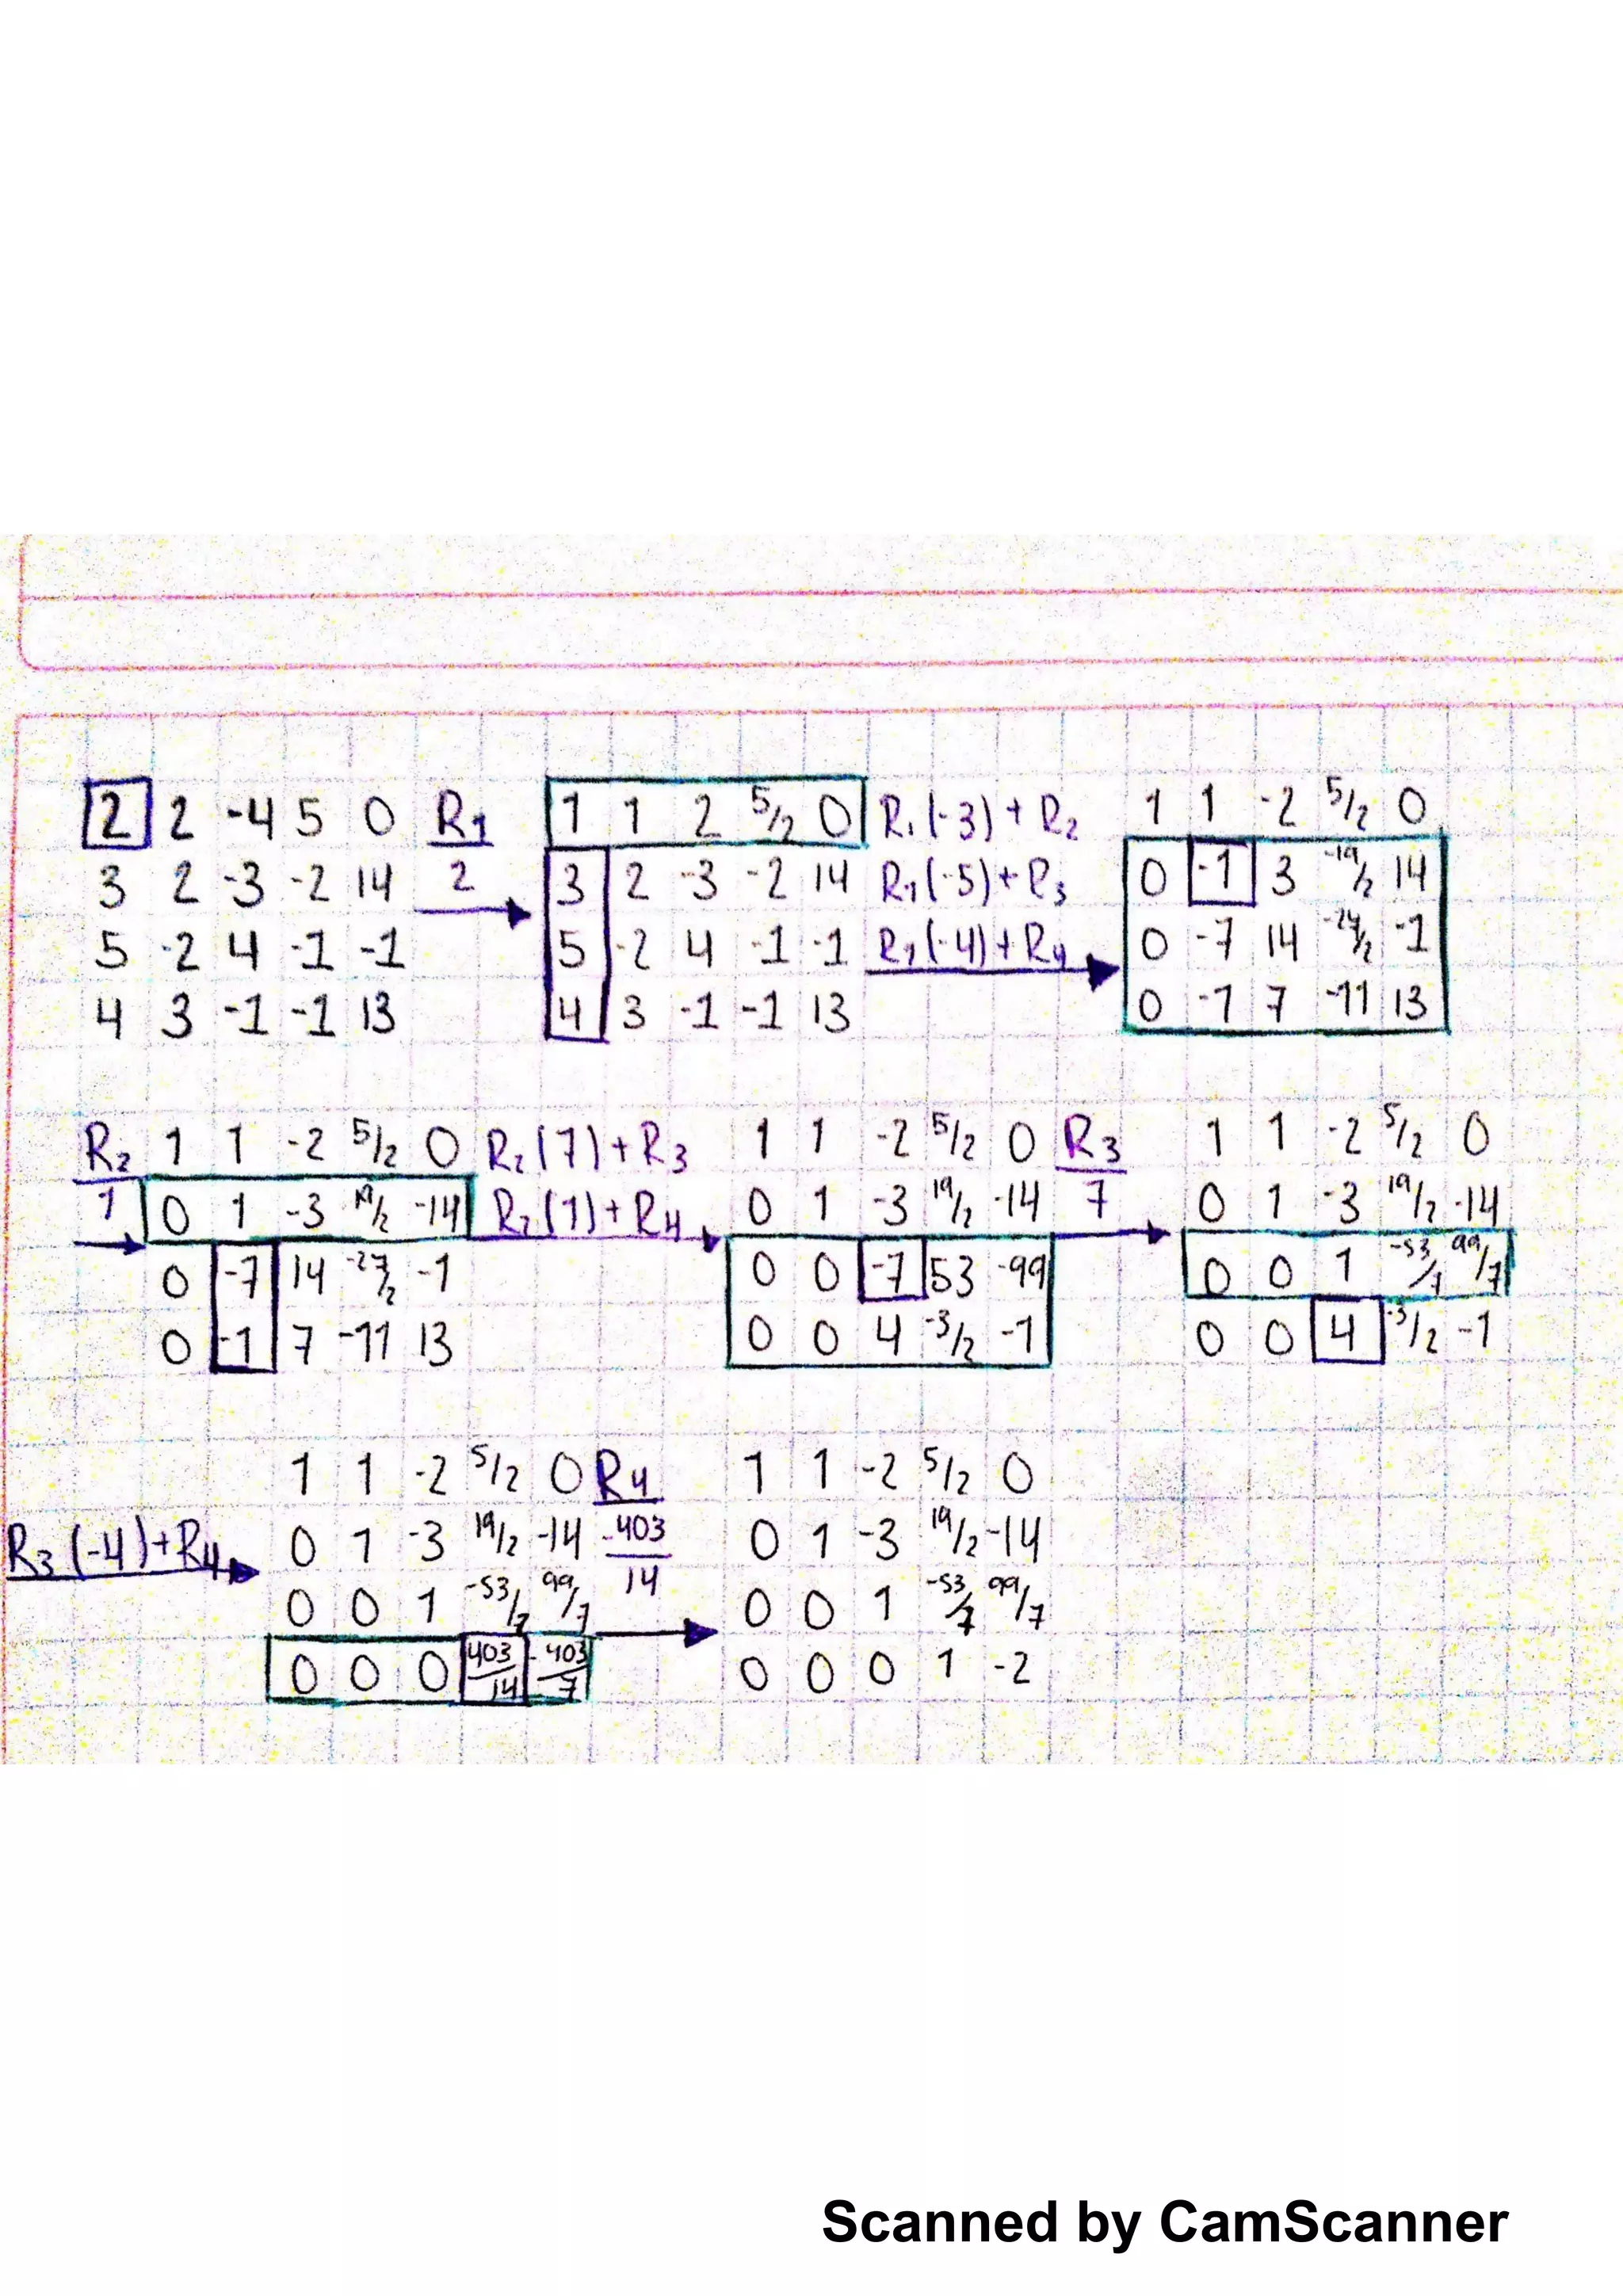 2 2 -4 5 0 R1 1 1 2 5/2 0 R1(-3)+R2 1 1 -2 5/2 0
3 2 -3 -2 14 2 3 2 -3 -2 14 R1(-5)+R3 0 -1 3 -19/2 14
5 -2 4 -1 -1 5 -2 4 -1 -1 R1(-4)+R4 0 -7 14 -27/2 -1
4 3 -1 -1 13 4 3 -1 -1 13 0 -1 7 -11 13
R2 1 1 -2 5/2 0 R2(7)+R3 1 1 -2 5/2 0 R3 1 1 -2 5/2 0
1 0 1 -3 19/2 -14 R2(1)+R4 0 1 -3 19/2 -14 7 0 1 -3 19/2 -14
0 -7 14 -27/2 -1 0 0 -7 53 -99 0 0 1 -53/7 99/7
0 -1 7 -11 13 0 0 4 -3/2 -1 0 0 4 -3/2 -1
1 1 -2 5/2 0 R4 1 1 -2 5/2 0
R3(-4)+R4 0 1 -3 19/2 -14 -403/14 0 1 -3 19/2 -14
0 0 1 -53/7 99/7 0 0 1 -53/7 99/7
0 0 0 403/14 -403/7 0 0 0 1 -2
Scanned by CamScanner